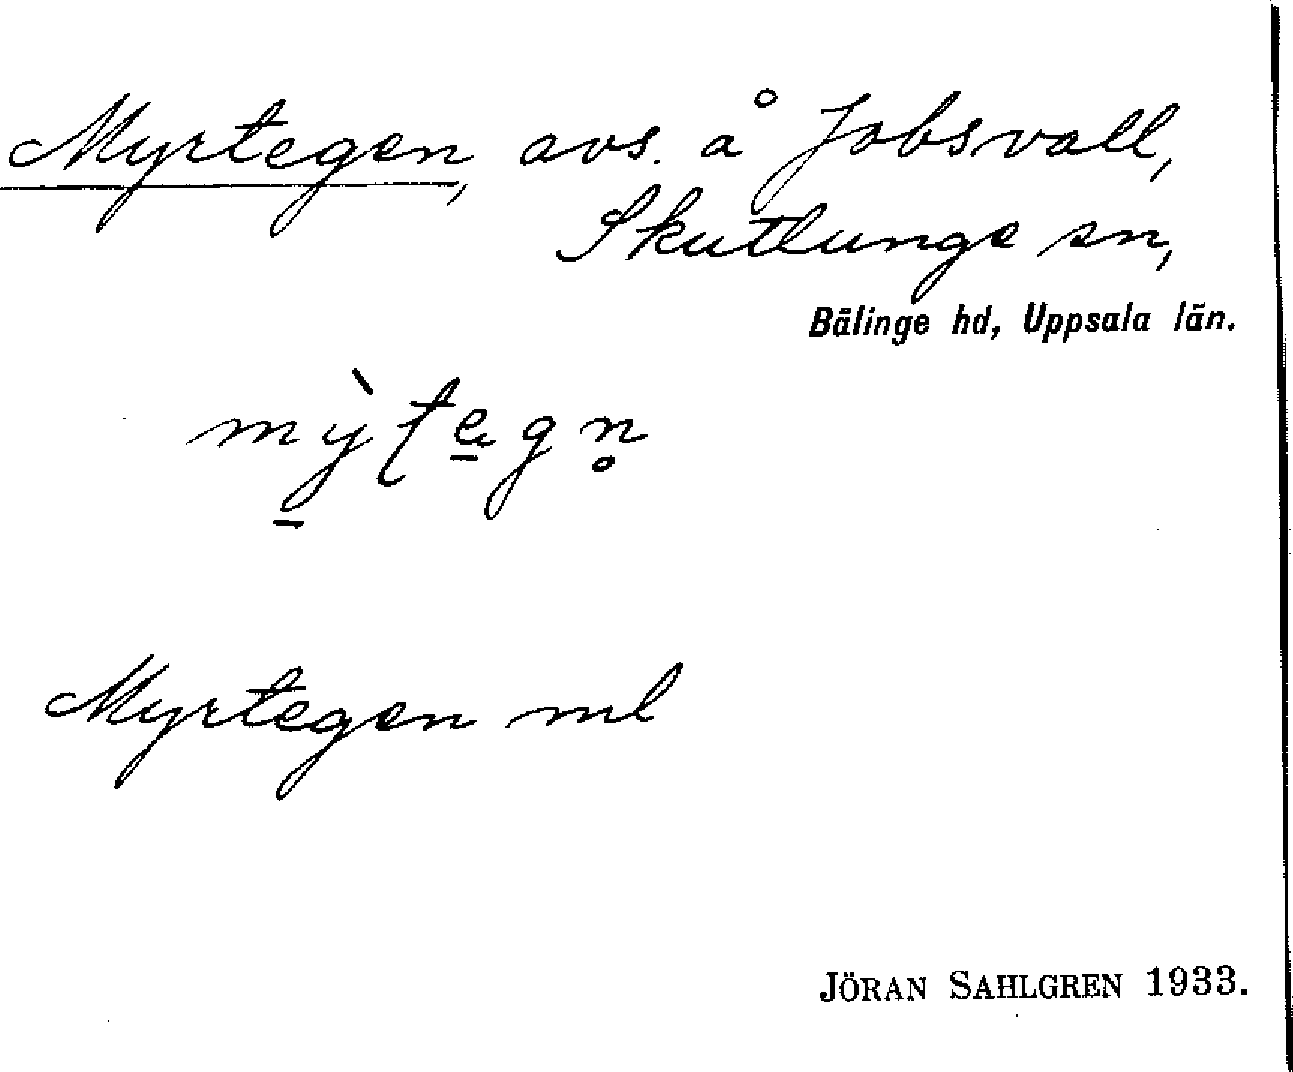 Myrtegen, avs. å Jobsvall,
Skuttunge sn,
Bälinge hd, Uppsala län.
Myrtegen ml
JÖRAN SAHLGREN 1933.